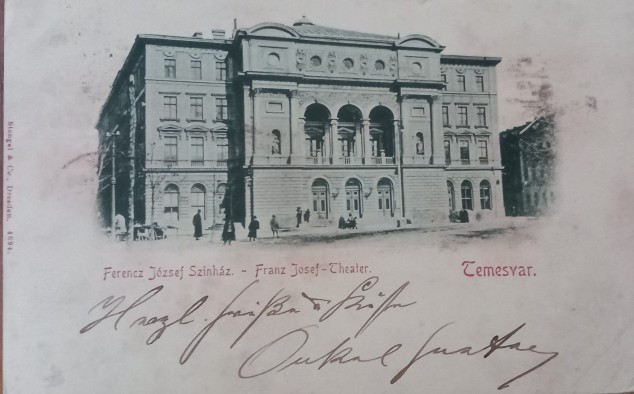 Stengel & Co., Dresden. 4694.
Ferencz József Szinház. - Franz Josef-Theater.
Temesvar.
Herzl. Grüße u Küsse
Onkel Gustav